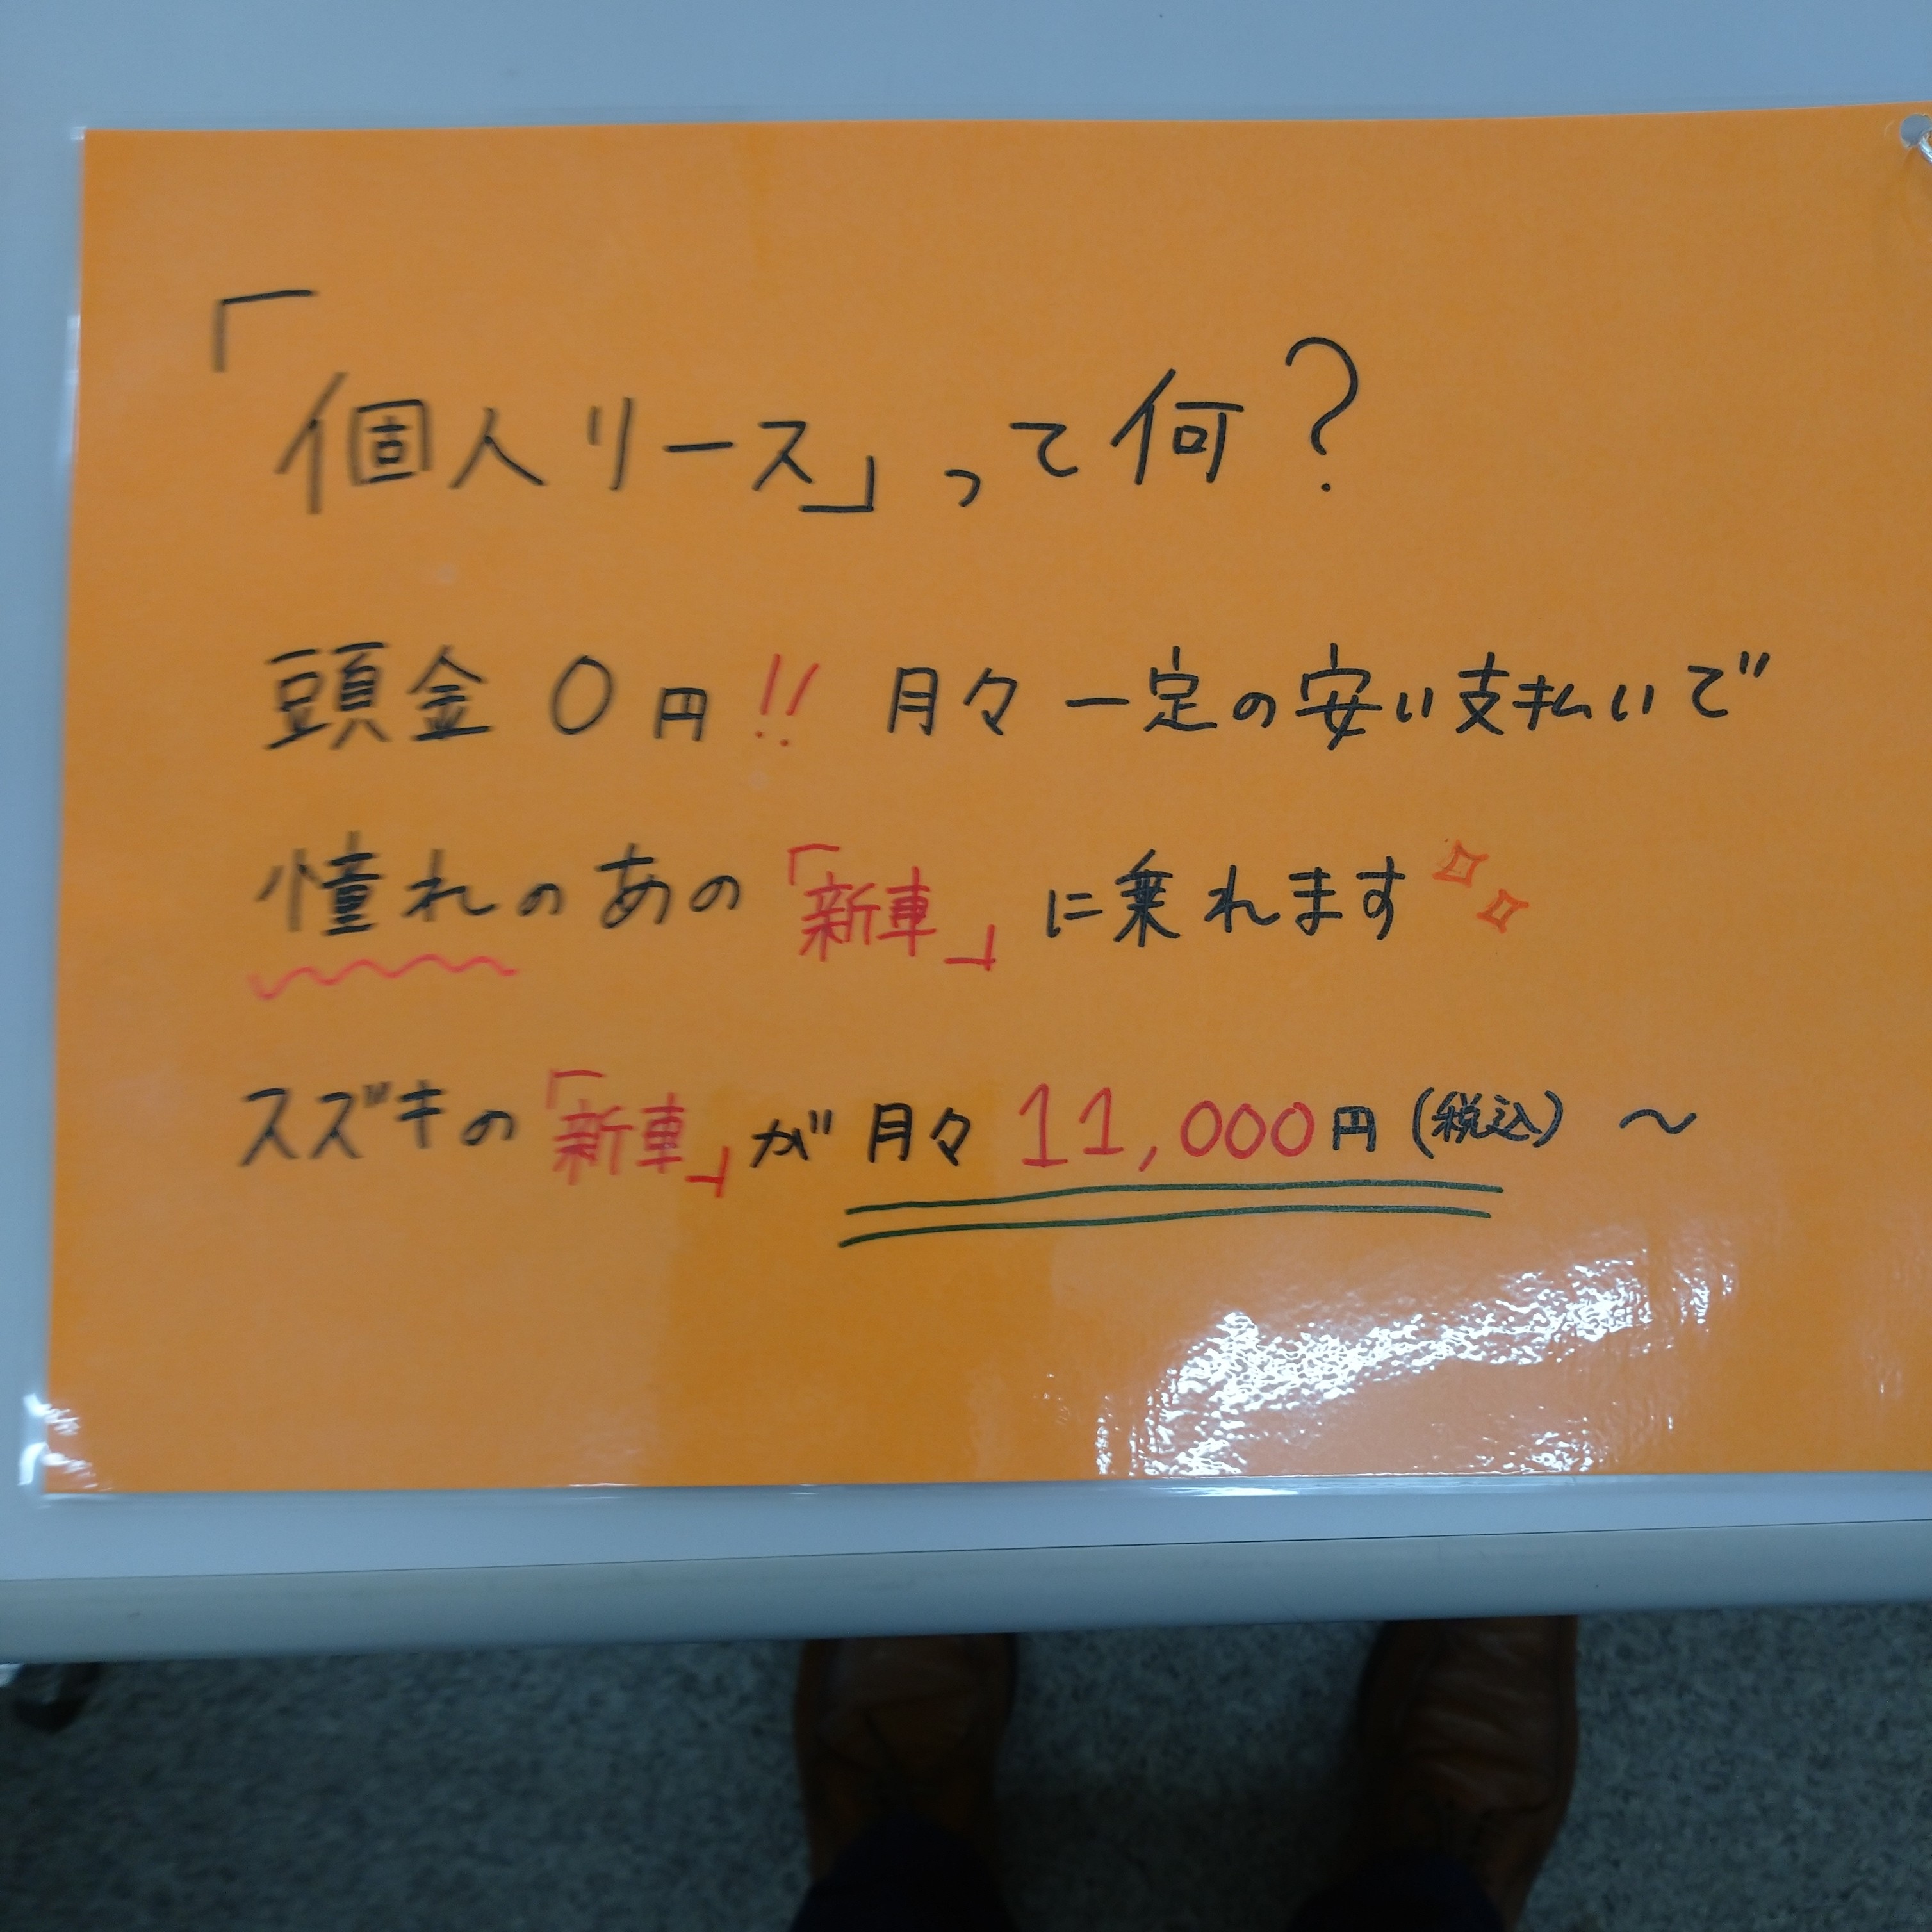 「個人リース」って何?
頭金0円!! 月々一定の安い支払いで
憧れのあの「新車」に乗れます
スズキの「新車」が月々11,000円(税込)～